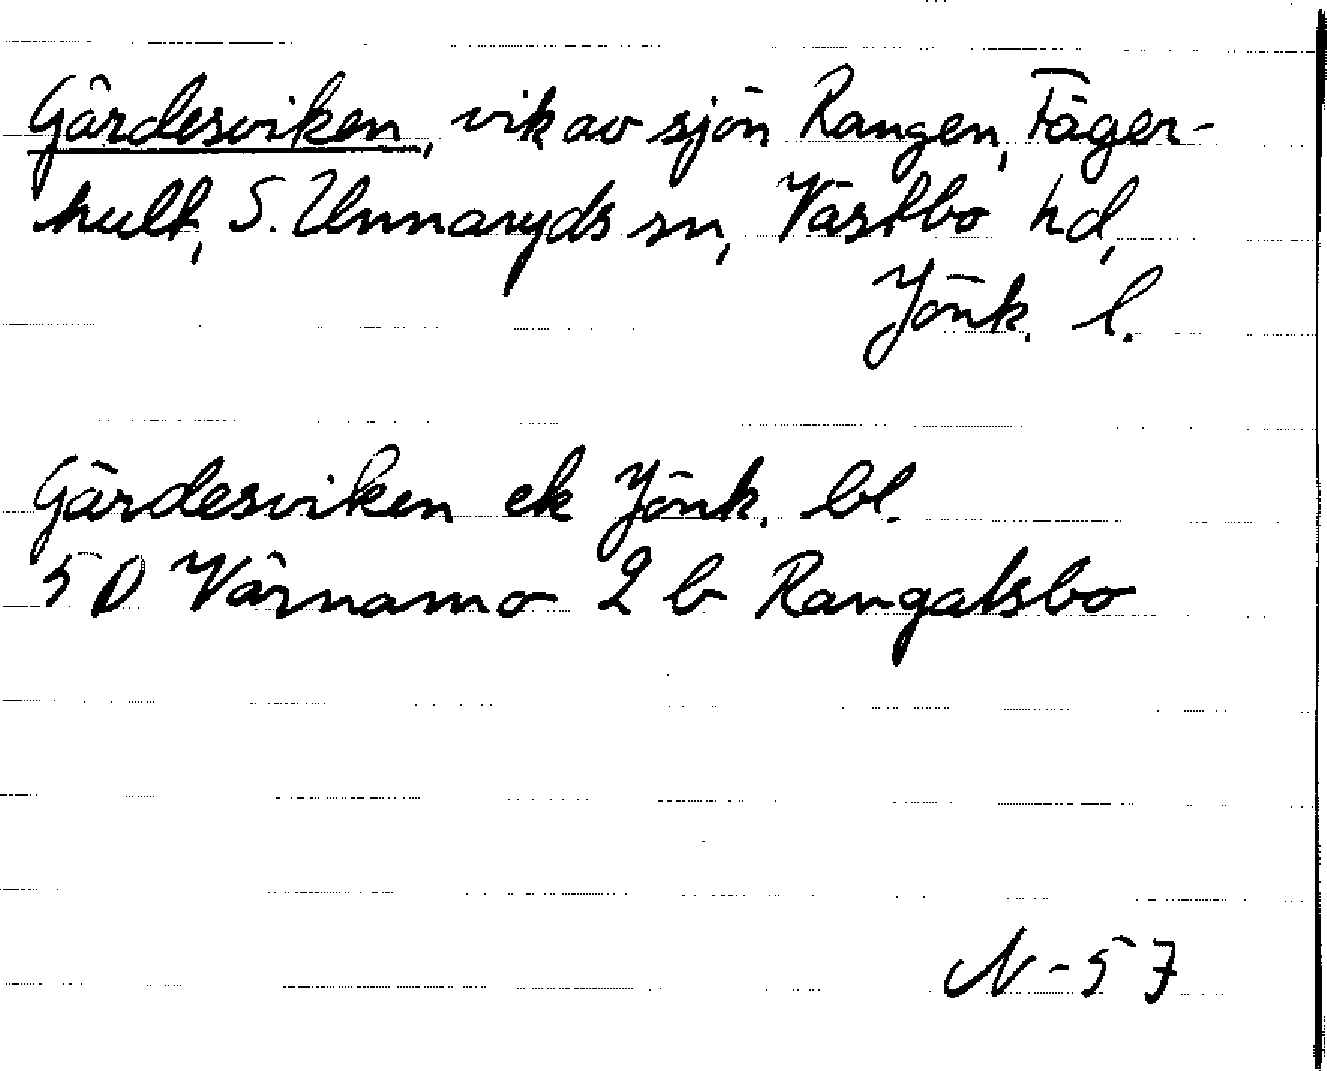 Gärdesviken, vik av sjön Rangen, Fäger-
hult, S. Unnaryds sn, Västbo hd,
Jönk. l.
Gärdesviken ek Jönk. bl.
5 D Värnamo 2 b Rangalsbo
N-57